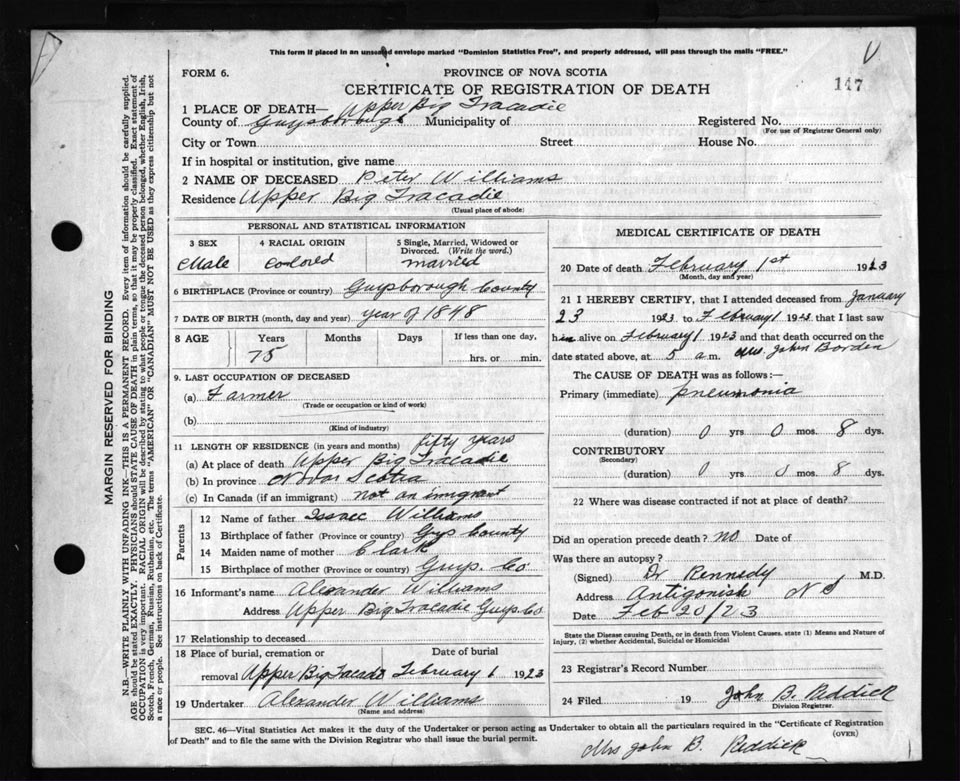 This form if placed in an unsealed envelope marked "Dominion Statistics Free", and properly addressed, will pass through the mails "FREE."
V
FORM 6.
PROVINCE OF NOVA SCOTIA
147
CERTIFICATE OF REGISTRATION OF DEATH
1 PLACE OF DEATH— Upper Big Tracadie
County of Guysborough Municipality of
Registered No.
(For use of Registrar General only)
City or Town Street House No.
If in hospital or institution, give name
2 NAME OF DECEASED Peter Williams
Residence Upper Big Tracadie
(Usual place of abode)
PERSONAL AND STATISTICAL INFORMATION
3 SEX 4 RACIAL ORIGIN 5 Single, Married, Widowed or Divorced. (Write the word.)
Male Colored married
6 BIRTHPLACE (Province or country) Guysborough County
7 DATE OF BIRTH (month, day and year) year of 1848
8 AGE Years Months Days If less than one day,
75 hrs. or min.
9. LAST OCCUPATION OF DECEASED
(a) Farmer
(Trade or occupation or kind of work)
(b)
(Kind of industry)
11 LENGTH OF RESIDENCE (in years and months) fifty years
(a) At place of death Upper Big Tracadie
(b) In province Nova Scotia
(c) In Canada (if an immigrant) not an imigrant
Parents
12 Name of father Issac Williams
13 Birthplace of father (Province or country) Guys County
14 Maiden name of mother Clark
15 Birthplace of mother (Province or country) Guys. Co
16 Informant's name Alexander Williams
Address Upper Big Tracadie Guys Co
17 Relationship to deceased
18 Place of burial, cremation or Date of burial
removal Upper Big Tracadi February 1 1923
19 Undertaker Alexander Williams
(Name and address)
MEDICAL CERTIFICATE OF DEATH
20 Date of death February 1st 1923
(Month, day and year)
21 I HEREBY CERTIFY, that I attended deceased from January
23 1923 to February 1 1923 that I last saw
him alive on February 1 1923 and that death occurred on the
date stated above, at 5 a.m. Mrs. John Borden
The CAUSE OF DEATH was as follows:—
Primary (immediate) pneumonia
(duration) 0 yrs 0 mos. 8 dys.
CONTRIBUTORY
(Secondary)
(duration) 0 yrs 0 mos. 8 dys.
22 Where was disease contracted if not at place of death?
Did an operation precede death? no Date of
Was there an autopsy?
(Signed) Dr Kennedy M.D.
Address Antigonish N S
Date Feb 20/23
State the Disease causing Death, or in death from Violent Causes. state (1) Means and Nature of
Injury, (2) whether Accidental, Suicidal or Homicidal
23 Registrar's Record Number
24 Filed 19 John B. Reddick
Division Registrar.
SEC. 46—Vital Statistics Act makes it the duty of the Undertaker or person acting as Undertaker to obtain all the particulars required in the "Certificate of Registration
of Death" and to file the same with the Division Registrar who shall issue the burial permit.
(OVER)
Mrs John B. Reddick
MARGIN RESERVED FOR BINDING
N.B.—WRITE PLAINLY WITH UNFADING INK—THIS IS A PERMANENT RECORD. Every item of information should be carefully supplied.
AGE should be stated EXACTLY. PHYSICIANS should STATE CAUSE OF DEATH in plain terms, so that it may be properly classified. Exact statement of
OCCUPATION is very important. RACIAL ORIGIN will be described by stating to what people or tongue the deceased person belonged, whether English, Irish,
Scotch, French, German, Russian, Ruthenian, etc. The terms "AMERICAN" OR "CANADIAN" MUST NOT BE USED as they express citizenship but not
a race or people. See instructions on back of Certificate.